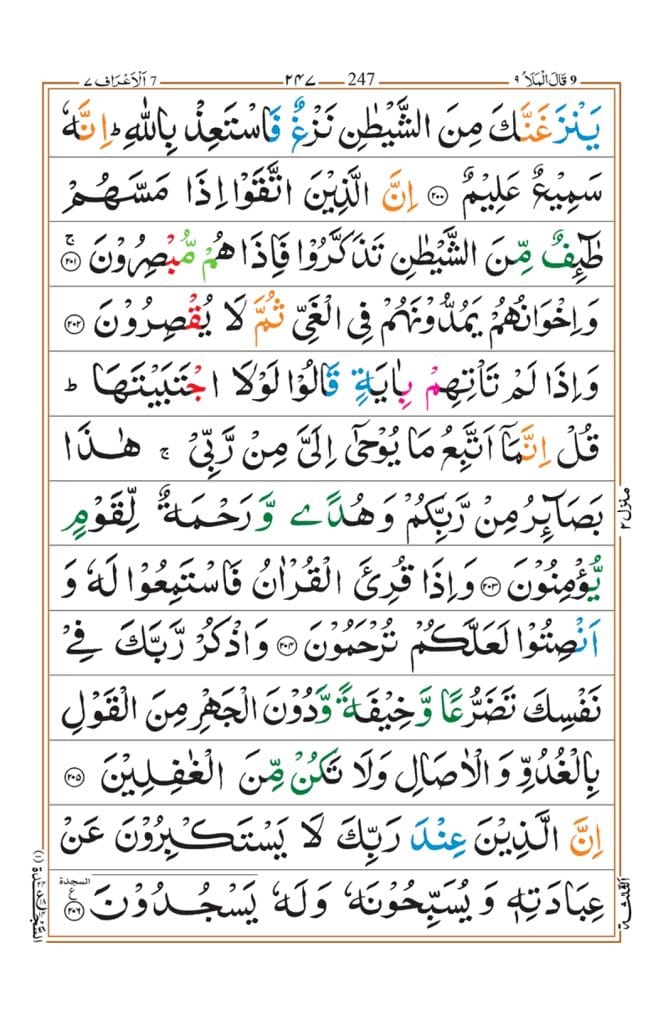 9 قَالَ الْمَلَاُ ٩ 247 ٢٤٧ 7 اَلْاَعْرَاف ٧
يَنْزَغَنَّكَ مِنَ الشَّيْطٰنِ نَزْغٌ فَاسْتَعِذْ بِاللّٰهِ ؕ اِنَّهٗ
سَمِيْعٌ عَلِيْمٌ ۝۲۰۰ اِنَّ الَّذِيْنَ اتَّقَوْا اِذَا مَسَّهُمْ
طٰٓئِفٌ مِّنَ الشَّيْطٰنِ تَذَكَّرُوْا فَاِذَا هُمْ مُّبْصِرُوْنَ ۚ ۝۲۰۱
وَاِخْوَانُهُمْ يَمُدُّوْنَهُمْ فِى الْغَىِّ ثُمَّ لَا يُقْصِرُوْنَ ۝۲۰۲
وَاِذَا لَمْ تَاْتِهِمْ بِاٰيَةٍ قَالُوْا لَوْلَا اجْتَبَيْتَهَا ؕ
قُلْ اِنَّمَاۤ اَتَّبِعُ مَا يُوْحٰٓى اِلَىَّ مِنْ رَّبِّىْ ۚ هٰذَا
بَصَآئِرُ مِنْ رَّبِّكُمْ وَهُدًى وَّ رَحْمَةٌ لِّقَوْمٍ
يُّؤْمِنُوْنَ ۝۲۰۳ وَاِذَا قُرِئَ الْقُرْاٰنُ فَاسْتَمِعُوْا لَهٗ وَ
اَنْصِتُوْا لَعَلَّكُمْ تُرْحَمُوْنَ ۝۲۰۴ وَاذْكُرْ رَّبَّكَ فِىْ
نَفْسِكَ تَضَرُّعًا وَّخِيْفَةً وَّدُوْنَ الْجَهْرِ مِنَ الْقَوْلِ
بِالْغُدُوِّ وَالْاٰصَالِ وَلَا تَكُنْ مِّنَ الْغٰفِلِيْنَ ۝۲۰۵
اِنَّ الَّذِيْنَ عِنْدَ رَبِّكَ لَا يَسْتَكْبِرُوْنَ عَنْ
عِبَادَتِهٖ وَيُسَبِّحُوْنَهٗ وَلَهٗ يَسْجُدُوْنَ ۝۲۰۶ السجدة ع
منزل ٢